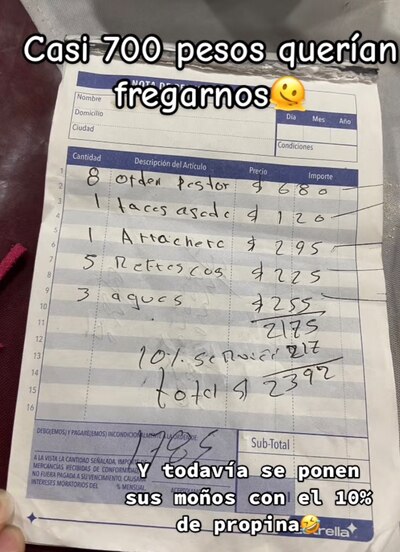 Casi 700 pesos querían
fregarnos🫠
NOTA DE
Nombre
Domicilio
Ciudad
Día Mes Año
Condiciones
Cantidad Descripción del Artículo Precio Importe
1
2 8 orden Pastor $ 680
3
4 1 tacos asada $ 120
5
6 1 Arrachera $ 295
7
8 5 Refrescos $ 225
9
10 3 aguas $255
11 2175
12
13 10% servicio 217
14
15 total $ 2392
16
DEBO(EMOS) Y PAGARÉ(EMOS) INCONDICIONALMENTE A LA ORDEN DE
1785
A LA VISTA LA CANTIDAD SEÑALADA, IMPORTE DE
MERCANCÍAS RECIBIDAS DE CONFORMIDAD
NO FUERA PAGADA A SU VENCIMIENTO, CAUSAR
INTERESES MORATORIOS DEL % MENSUAL
Sub-Total
Y todavía se ponen
sus moños con el 10%
de propina🤣